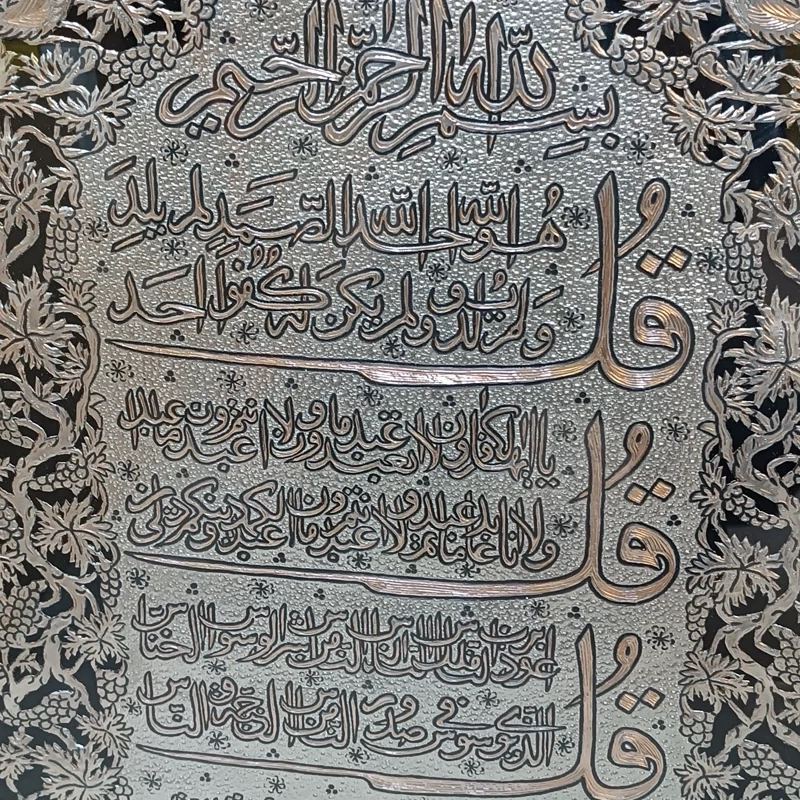 بسم الله الرحمن الرحيم
قل هو الله احد الله الصمد لم يلد
ولم يولد ولم يكن له كفوا احد
قل يا ايها الكافرون لا اعبد ما تعبدون ولا انتم عابدون ما اعبد
ولا انا عابد ما عبدتم ولا انتم عابدون ما اعبد لكم دينكم ولي دين
قل اعوذ برب الناس ملك الناس اله الناس من شر الوسواس الخناس
الذي يوسوس في صدور الناس من الجنة و الناس